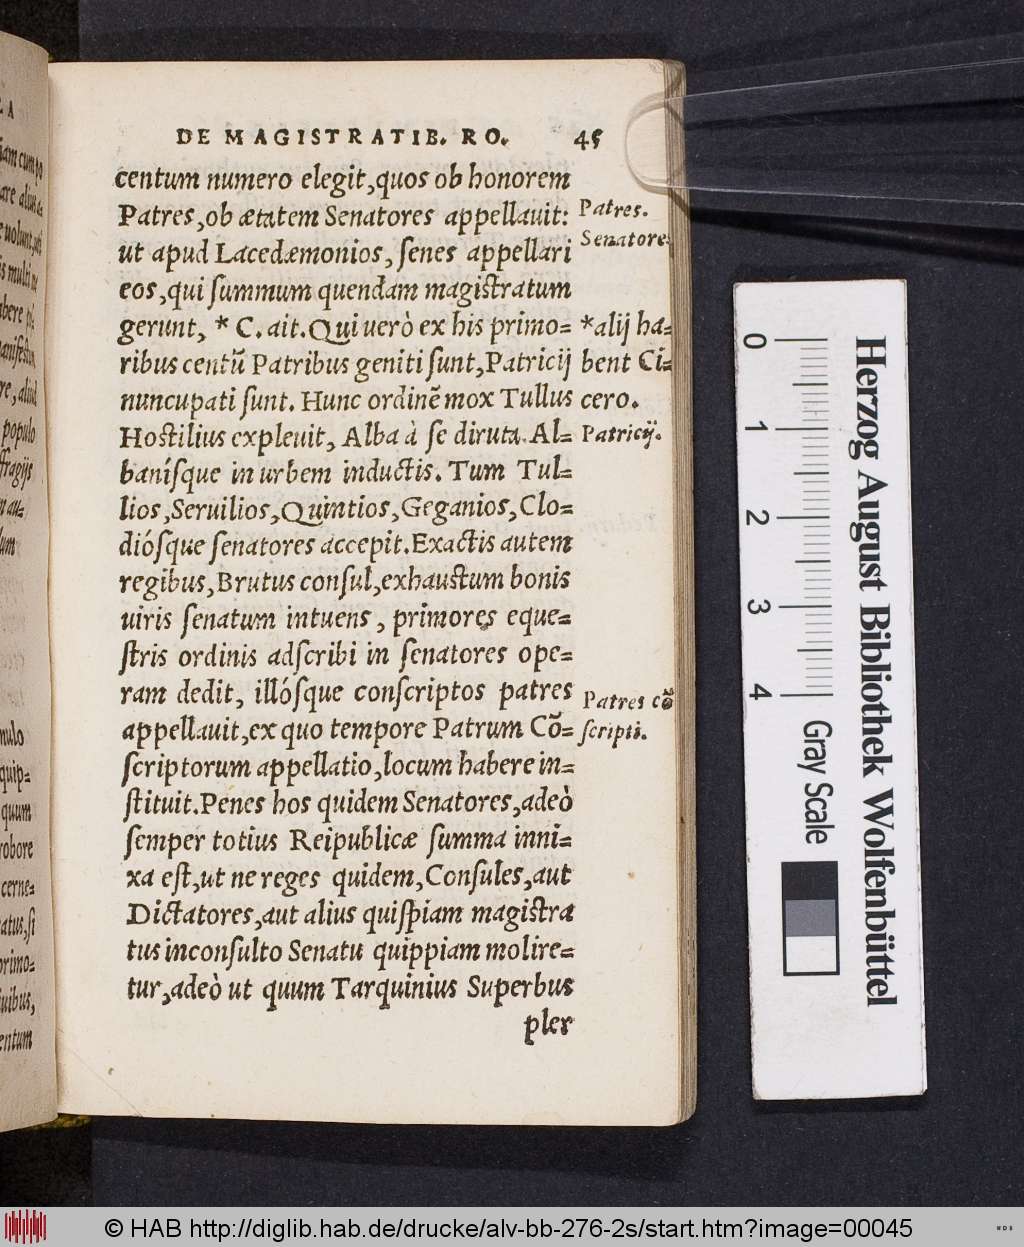 DE MAGISTRATIB. RO. 45
centum numero elegit,quos ob honorem
Patres,ob ætatem Senatores appellauit:
Patres.
ut apud Lacedæmonios, ſenes appellari
Senatore
eos,qui ſummum quendam magiſtratum
gerunt, * C. ait. Qui uerò ex his primo=
*alij ha=
ribus centũ Patribus geniti ſunt,Patricij
bent Ci=
nuncupati ſunt. Hunc ordinẽ mox Tullus
cero.
Hoſtilius expleuit, Alba à ſe diruta. Al=
Patricij.
baniſque in urbem inductis. Tum Tul=
lios,Seruilios,Quintios,Geganios,Clo=
dióſque ſenatores accepit.Exactis autem
regibus,Brutus conſul,exhauſtum bonis
uiris ſenatum intuens, primores eque=
ſtris ordinis adſcribi in ſenatores ope=
ram dedit, illóſque conſcriptos patres
Patres cõ
appellauit,ex quo tempore Patrum Cõ=
ſcripti.
ſcriptorum appellatio,locum habere in=
ſtituit.Penes hos quidem Senatores,adeò
ſemper totius Reipublicæ ſumma inni=
xa eſt,ut ne reges quidem,Conſules,aut
Dictatores,aut alius quiſpiam magiſtra
tus inconſulto Senatu quippiam molire=
tur,adeò ut quum Tarquinius Superbus
pler
Herzog August Bibliothek Wolfenbüttel
0 1 2 3 4 Gray Scale
© HAB http://diglib.hab.de/drucke/alv-bb-276-2s/start.htm?image=00045